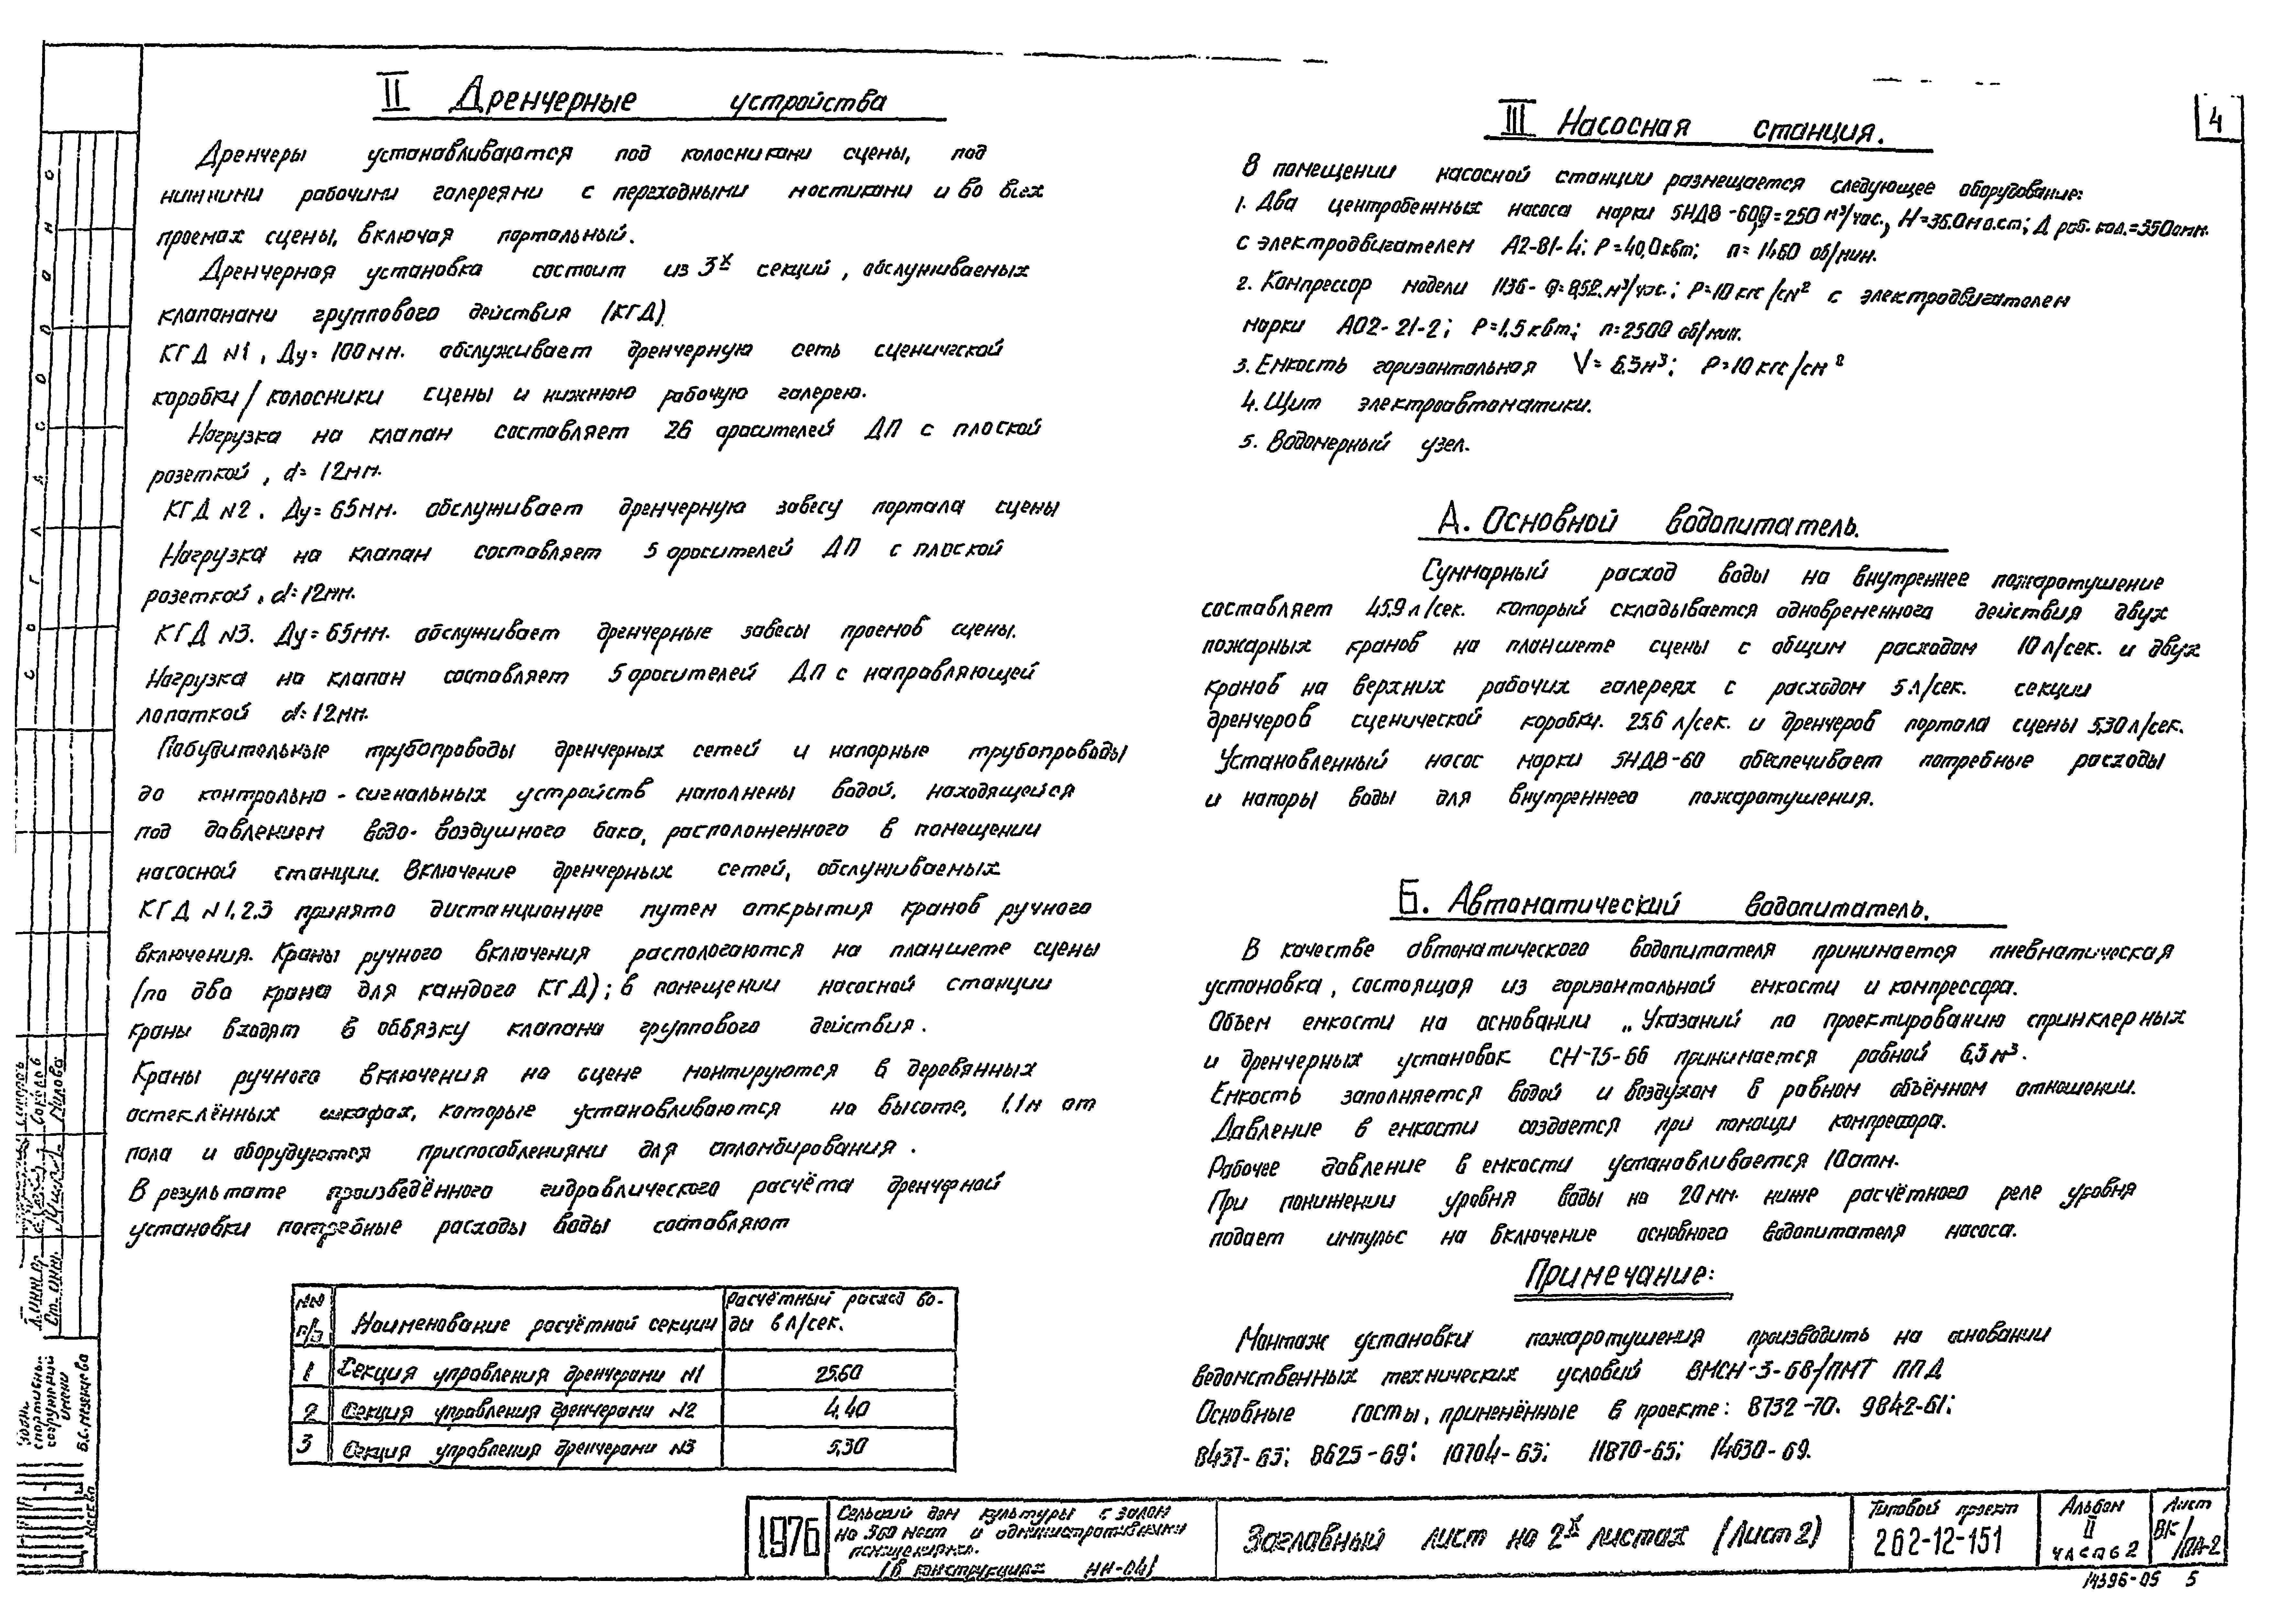 II Дренчерные устройства
Дренчеры устанавливаются под колосниками сцены, под
нижними рабочими галереями с переходными мостиками и во всех
проемах сцены, включая портальный.
Дренчерная установка состоит из 3х секций, обслуживаемых
клапанами группового действия (КГД)
КГД N1, Ду= 100мм. обслуживает дренчерную сеть сценической
коробки/колосники сцены и нижнюю рабочую галерею.
Нагрузка на клапан составляет 26 оросителей ДП с плоской
розеткой, d= 12мм.
КГД N2. Ду= 65мм. обслуживает дренчерную завесу портала сцены
Нагрузка на клапан составляет 5 оросителей ДП с плоской
розеткой, d=12мм.
КГД N3. Ду= 65мм. обслуживает дренчерные завесы проемов сцены.
Нагрузка на клапан составляет 5 оросителей ДП с направляющей
лопаткой d=12мм.
Побудительные трубопроводы дренчерных сетей и напорные трубопроводы
до контрольно-сигнальных устройств наполнены водой, находящейся
под давлением водо-воздушного бака, расположенного в помещении
насосной станции. Включение дренчерных сетей, обслуживаемых
КГД N1,2,3 принято дистанционное путем открытия кранов ручного
включения. Краны ручного включения распологаются на планшете сцены
(по два крана для каждого КГД); в помещении насосной станции
краны входят в обвязку клапана группового действия.
Краны ручного включения на сцене монтируются в деревянных
остеклённых шкафах, которые устанавливаются на высоте, 1,1м от
пола и оборудуются приспособлениями для опломбирования.
В результате произведённого гидравлического расчёта дренчерной
установки потребные расходы воды составляют
NN п/п Наименование расчётной секции Расчётный расход во-
ды в л/сек.
1 Секция управления дренчерами N1 25,60
2 Секция управления дренчерами N2 4,40
3 Секция управления дренчерами N3 5,30
4
III Насосная станция.
В помещении насосной станции размещается следующее оборудование:
1. Два центробежных насоса марки 5НДВ-60, Q=250 м³/час., Н=36.0м в.ст; Д раб. кол.=350мм.
с электродвигателем А2-81-4; Р=40,0квт; n=1460 об/мин.
2. Компрессор модели 1136- Q=8,52.м³/час.; Р=10 кгс/см² с электродвигателем
марки АО2-21-2; Р=1,5квт; n=2500 об/мин.
3. Емкость горизонтальная V= 6,3м³; Р=10 кгс/см²
4. Щит электроавтоматики.
5. Водомерный узел.
А. Основной водопитатель.
Суммарный расход воды на внутреннее пожаротушение
составляет 45,9 л/сек. который складывается одновременного действия двух
пожарных кранов на планшете сцены с общим расходом 10 л/сек. и двух
кранов на верхних рабочих галереях с расходом 5 л/сек. секции
дренчеров сценической коробки. 25,6 л/сек. и дренчеров портала сцены 5,30 л/сек.
Установленный насос марки 5НДВ-60 обеспечивает потребные расходы
и напоры воды для внутреннего пожаротушения.
Б. Автоматический водопитатель.
В качестве автоматического водопитателя принимается пневматическая
установка, состоящая из горизонтальной емкости и компрессора.
Объем емкости на основании „Указаний по проектированию спринклерных
и дренчерных установок СН-75-66 принимается равной 6,3 м³.
Емкость заполняется водой и воздухом в равном объёмном отношении.
Давление в емкости создается при помощи компрессора.
Рабочее давление в емкости устанавливается 10атм.
При понижении уровня воды на 20мм. ниже расчётного реле уровня
подает импульс на включение основного водопитателя насоса.
Примечание:
Монтаж установки пожаротушения производить на основании
ведомственных технических условий ВМСН-3-68/ПМТ ППД
Основные госты, применённые в проекте: 8732-70. 9842-61;
8437-63; 8625-69; 10704-63; 11870-65; 14630-69.
1976
Сельский дом культуры с залом
на 360 мест и административными
помещениями.
/в конструкциях ИИ-04/
Заглавный лист на 2х листах (Лист 2)
Типовой проект
262-12-151
Альбом
II
часть 2
Лист
ВК/ПА-2
14396-05 5
СОГЛАСОВАНО
Ст. инж.
спортивных
сооружений
имени
Б.С. Мезенцева
Москва